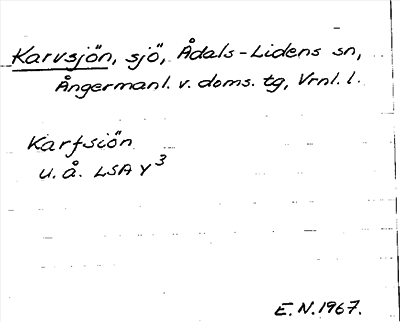 Karvsjön, sjö, Ådals-Lidens sn,
Ångermanl. v. doms. tg, Vrnl. l.
Karfsiön
u. å. LSA Y3
E. N. 1967.